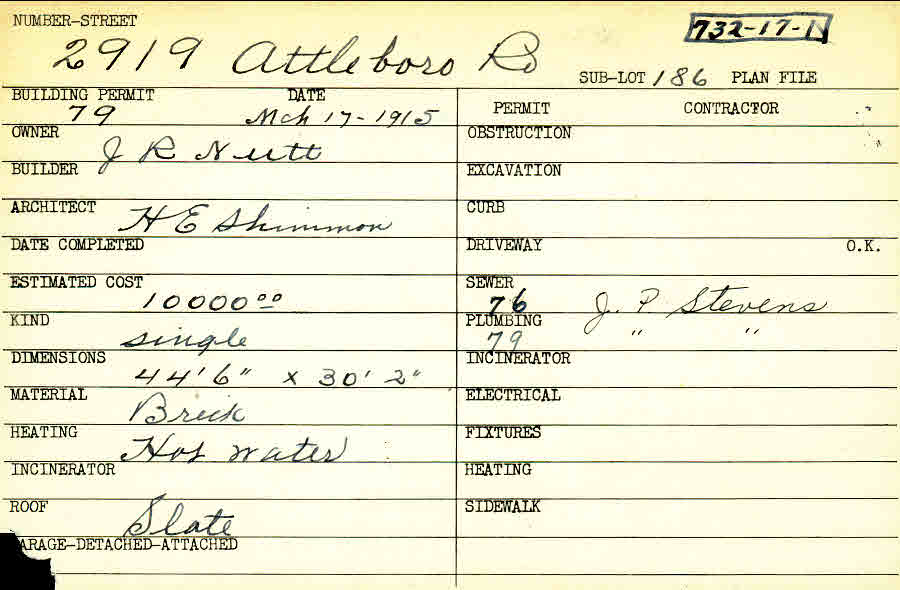 NUMBER-STREET
732-17-1
2919 Attleboro Rd
SUB-LOT 186 PLAN FILE
BUILDING PERMIT DATE
79 Mch 17-1915
OWNER
J R Nutt
BUILDER
ARCHITECT
H E Shimmon
DATE COMPLETED
ESTIMATED COST
10000 00
KIND
single
DIMENSIONS
44' 6" x 30' 2"
MATERIAL
Brick
HEATING
Hot water
INCINERATOR
ROOF
Slate
ARAGE-DETACHED-ATTACHED
PERMIT CONTRACTOR
OBSTRUCTION
EXCAVATION
CURB
DRIVEWAY O.K.
SEWER
76 J. P Stevens
PLUMBING
79 " "
INCINERATOR
ELECTRICAL
FIXTURES
HEATING
SIDEWALK